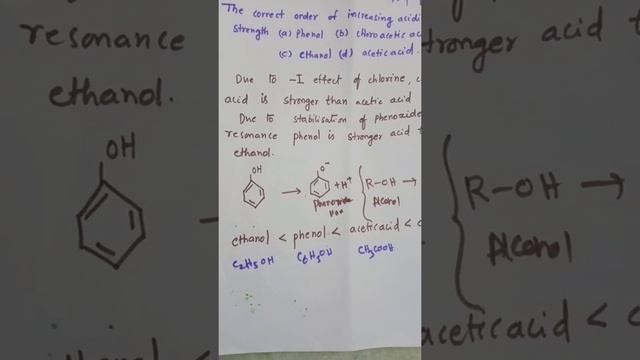 resonance
ethanol.
OH
The correct order of increasing acidi
strength (a) phenol (b) chloroacetic ac
(c) ethanol (d) acetic acid.
Due to -I effect of chlorine, c
acid is stronger than acetic acid
Due to stabilisation of phenoxide
resonance phenol is stronger acid t
ethanol.
OH → O⁻ + H⁺ { R-OH →
ion Alcohol
ethanol < phenol < acetic acid < c
C₂H₅OH C₆H₅OH CH₃COOH
tronger acid
R-OH →
Alcohol
acetic acid < c